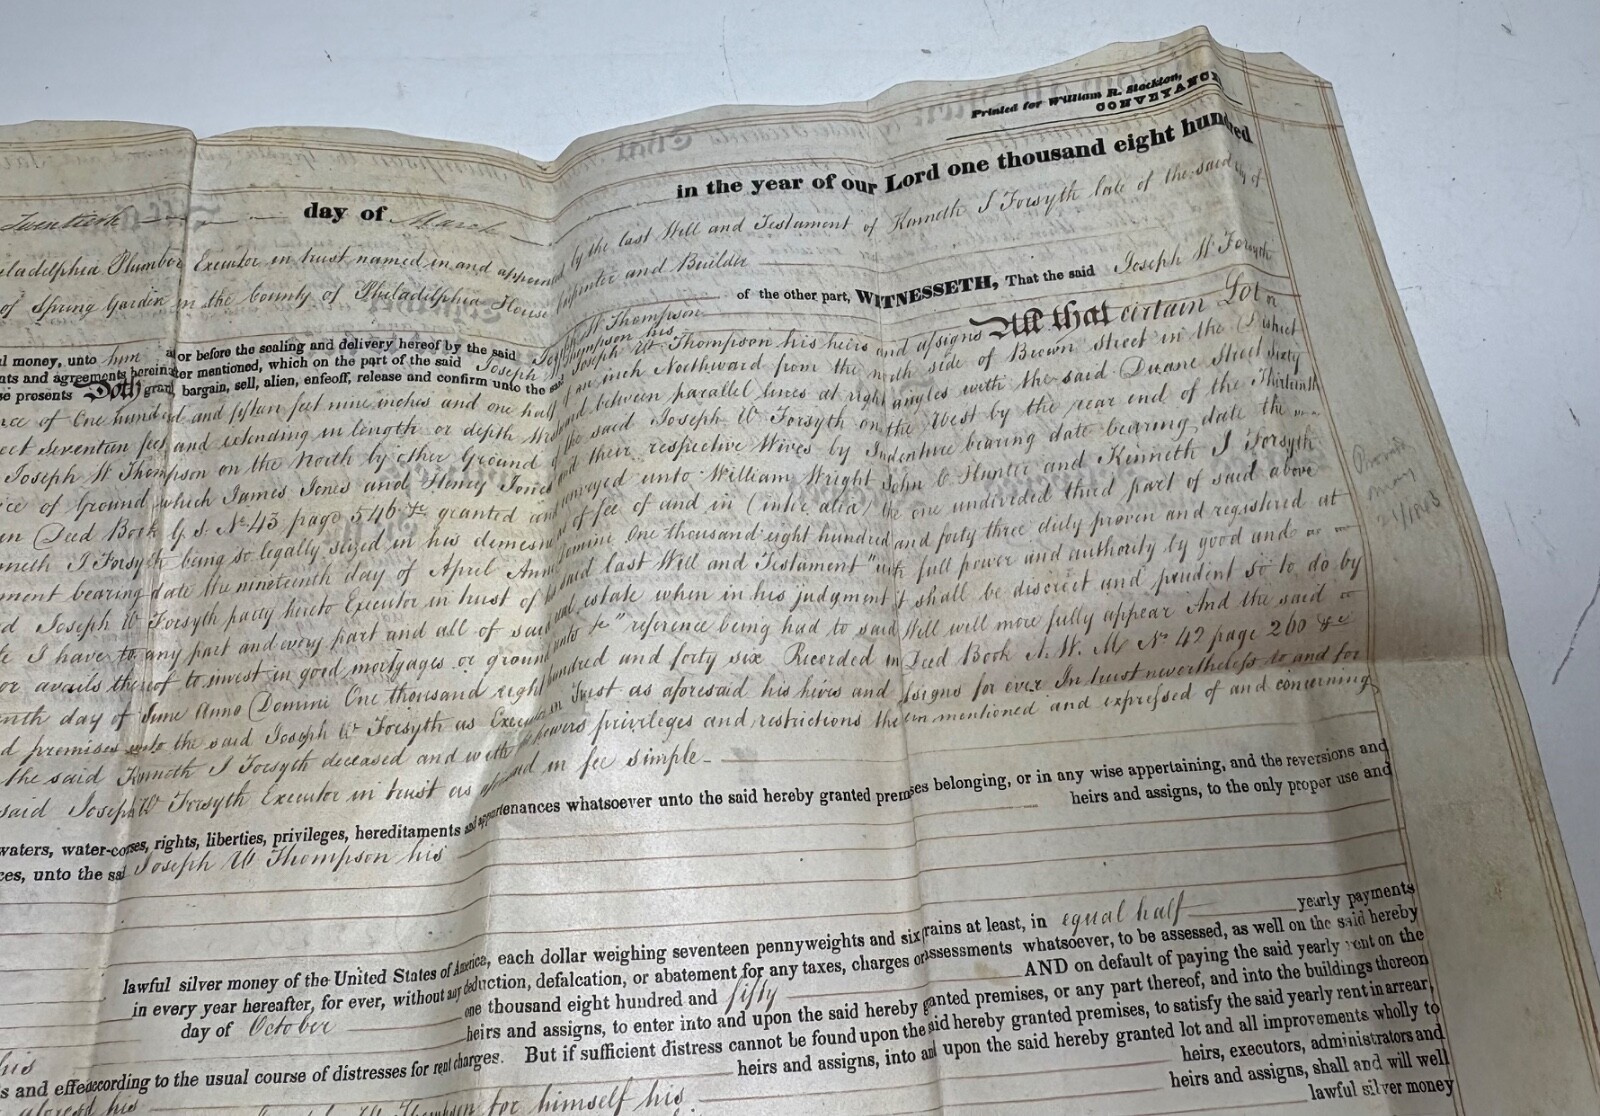 Printed for William R. Stockton,
CONVEYANCER
in the year of our Lord one thousand eight hundred
Twentieth day of March
by the last Will and Testament of Kenneth J Forsyth late of the said City of
iladelphia Plumber Executor in trust named in and appointed
arpenter and Builder
of Spring Garden in the County of Philadelphia House
of the other part, WITNESSETH, That the said Joseph W Forsyth
W Thompson
l money, unto him at or before the sealing and delivery hereof by the said Joseph W Thompson his
nts and agreements hereinafter mentioned, which on the part of the said Joseph W Thompson his heirs and assigns All that certain Lot or
se presents Doth grant, bargain, sell, alien, enfeoff, release and confirm unto the said
nce of One hundred and fifteen feet nine inches and one half of an inch Northward from the north side of Brown Street in the District
eet Seventeen feet and extending in length or depth between parallel lines at right angles with the said Duane Street Sixty
Joseph W Thompson on the North by other Ground of the said Joseph W Forsyth on the West by the rear end of the Thirteenth
ice of Ground which James Jones and Henry Jones and their respective Wives by Indenture bearing date bearing date the
in Deed Book G. S. No. 43 page 546 &c granted and conveyed unto William Wright John C Hunter and Kenneth J Forsyth
nneth J Forsyth being so legally seized in his demesne as of fee of and in (inter alia) the one undivided third part of said above
ment bearing date the nineteenth day of April Anno Domini One thousand eight hundred and forty three duly proven and registered at
d Joseph W Forsyth party hereto Executor in trust of his said last Will and Testament "with full power and authority by good and
te I have to any part and every part and all of said real estate when in his judgment it shall be discreet and prudent so to do by
or avails thereof to invest in good mortgages or ground "reference being had to said Will will more fully appear And the said
nth day of June Anno Domini One thousand eight hundred and forty six Recorded in Deed Book A. W. M No. 42 page 260 &c
d premises unto the said Joseph W Forsyth as Executor in Trust as aforesaid his heirs and assigns for ever In trust nevertheless to and for
the said Kenneth J Forsyth deceased and with powers privileges and restrictions therein mentioned and expressed of and concerning
said Joseph W Forsyth Executor in trust as aforesaid in fee simple
waters, water-courses, rights, liberties, privileges, hereditaments and appurtenances whatsoever unto the said hereby granted premises belonging, or in any wise appertaining, and the reversions and
ces, unto the said Joseph W Thompson his
heirs and assigns, to the only proper use and
lawful silver money of the United States of America, each dollar weighing seventeen pennyweights and six grains at least, in equal half yearly payments
in every year hereafter, for ever, without any deduction, defalcation, or abatement for any taxes, charges or assessments whatsoever, to be assessed, as well on the said hereby
day of October one thousand eight hundred and fifty AND on default of paying the said yearly rent on the
heirs and assigns, to enter into and upon the said hereby granted premises, or any part thereof, and into the buildings thereon
his
s and effe according to the usual course of distresses for rent charges. But if sufficient distress cannot be found upon the said hereby granted premises, to satisfy the said yearly rent in arrear,
heirs and assigns, into and upon the said hereby granted lot and all improvements wholly to
his
Thompson for himself his heirs, executors, administrators and
heirs and assigns, shall and will well
lawful silver money